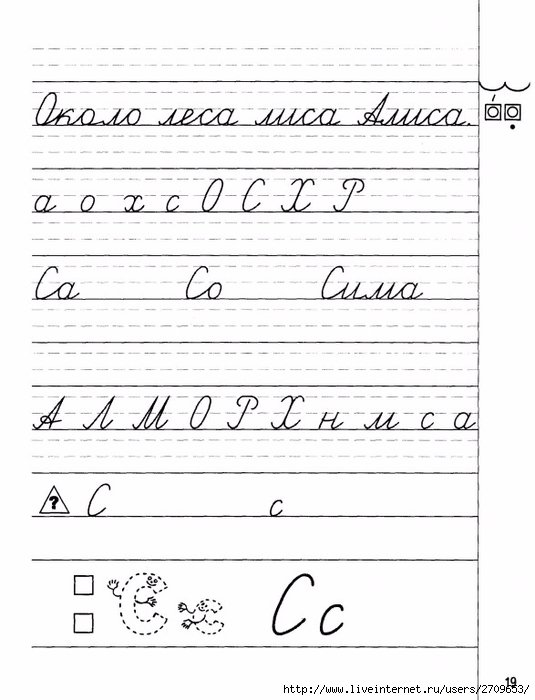 Около леса лиса Алиса.
а о х с О С Х Р
Са Со Сима
А Л М О Р Х н м с а
? С с
С с Сс
19
http://www.liveinternet.ru/users/2709653/